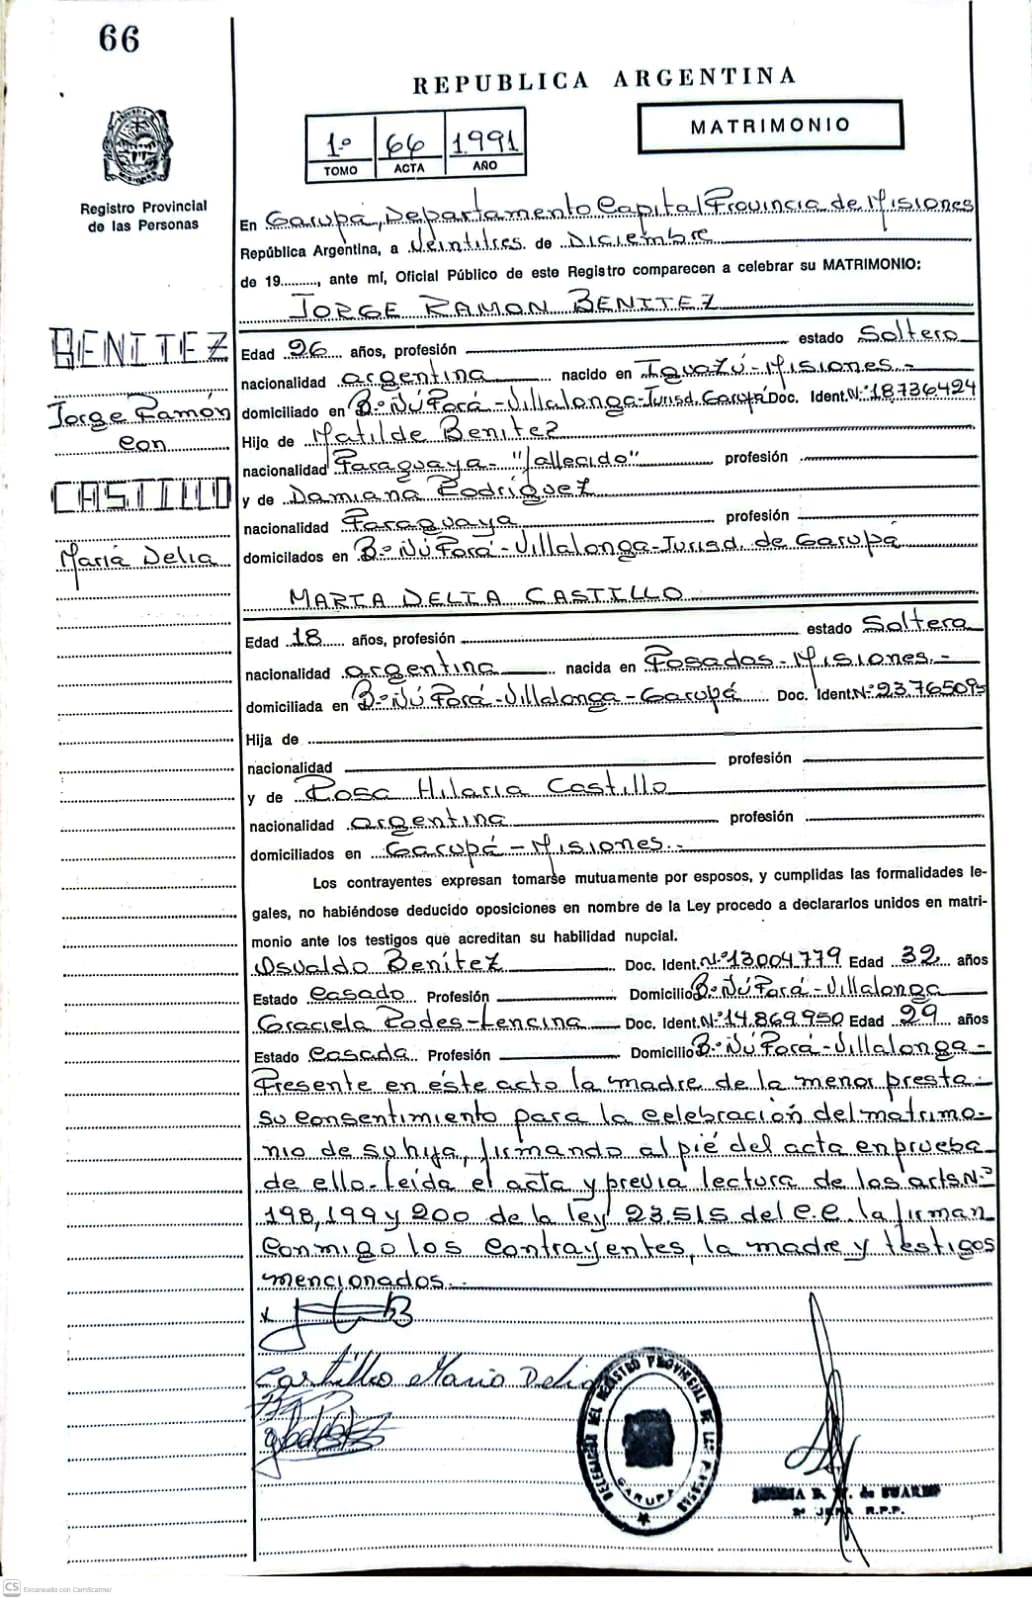 66
REPUBLICA ARGENTINA
MATRIMONIO
1º 66 1991
TOMO ACTA AÑO
Registro Provincial
de las Personas
En Garupá, Departamento Capital Provincia de Misiones
República Argentina, a Veintitres de Diciembre
de 19........., ante mí, Oficial Público de este Registro comparecen a celebrar su MATRIMONIO:
JORGE RAMON BENITEZ
BENITEZ
Jorge Ramón
con
CASTILLO
María Delia
Edad 26 años, profesión estado Soltero
nacionalidad argentina nacido en Iguazú-Misiones.-
domiciliado en B.º Ñú Porá-Villalonga-Jurisd. Garupá Doc. Ident. Nº 18.736424
Hija de Matilde Benitez
nacionalidad Paraguaya- "fallecido" profesión
y de Damiana Rodríguez
nacionalidad Paraguaya profesión
domicilados en B.º Ñú Porá-Villalonga-Jurisd. de Garupá
MARIA DELIA CASTILLO
Edad 18 años, profesión estado Soltera
nacionalidad argentina nacida en Posadas-Misiones.-
domiciliada en B.º Ñú Porá-Villalonga-Garupá Doc. Ident. Nº 23.765095
Hija de
nacionalidad profesión
y de Rosa Hilaria Castillo
nacionalidad argentina profesión
domiciliados en Garupá-Misiones.-
Los contrayentes expresan tomarse mutuamente por esposos, y cumplidas las formalidades le-
gales, no habiéndose deducido oposiciones en nombre de la Ley procedo a declararlos unidos en matri-
monio ante los testigos que acreditan su habilidad nupcial.
Osvaldo Benítez Doc. Ident. Nº 13004.779 Edad 32 años
Estado Casado Profesión Domicilio B.º Ñú Porá-Villalonga
Graciela Rodes-Lencina Doc. Ident. Nº 14.869.950 Edad 29 años
Estado Casada Profesión Domicilio B.º Ñú Porá-Villalonga-
Presente en éste acto la madre de la menor presta
su consentimiento para la celebración del matrimo-
nio de su hija, firmando al pié del acta en prueba
de ello.-Leída el acta y previa lectura de los arts. Nº
198, 199 y 200 de la ley 23.515 del C.C. la firman
conmigo los contrayentes, la madre y testigos
mencionados.-
Castillo Maria Delia
DELEGACION DEL REGISTRO PROVINCIAL DE LAS PERSONAS
GARUPA
de SUAREZ
JEFA R.P.P.
CS Escaneado con CamScanner